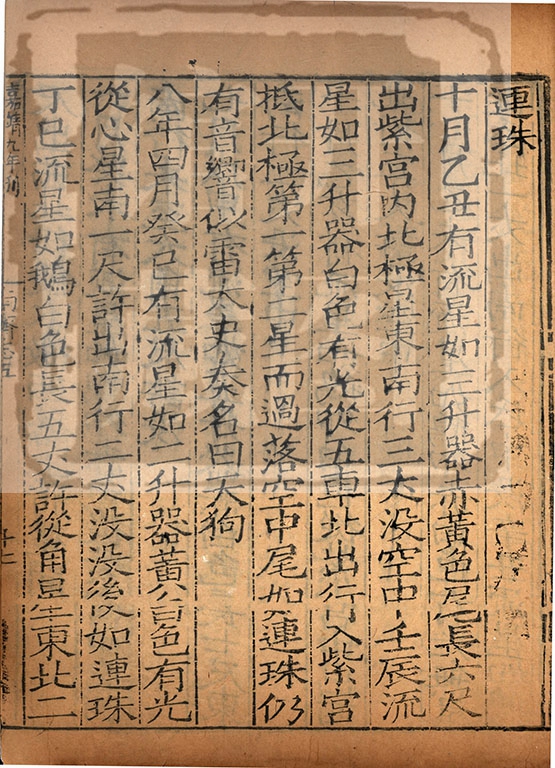 連珠
十月乙丑有流星如三升器赤黃色尾長六尺
出紫宮內北極星東南行三丈没空中壬辰流
星如三升器白色有光從五車北出行入紫宮
抵北極第一第二星而過落空中尾如連珠仍
有音響似雷太史奏名曰天狗
八年四月癸巳有流星如二升器黃白色有光
從心星南一尺許出南行二丈没没後如連珠
丁巳流星如鵝白色長五丈許從角星東北二
嘉靖九年刊
南齊志五